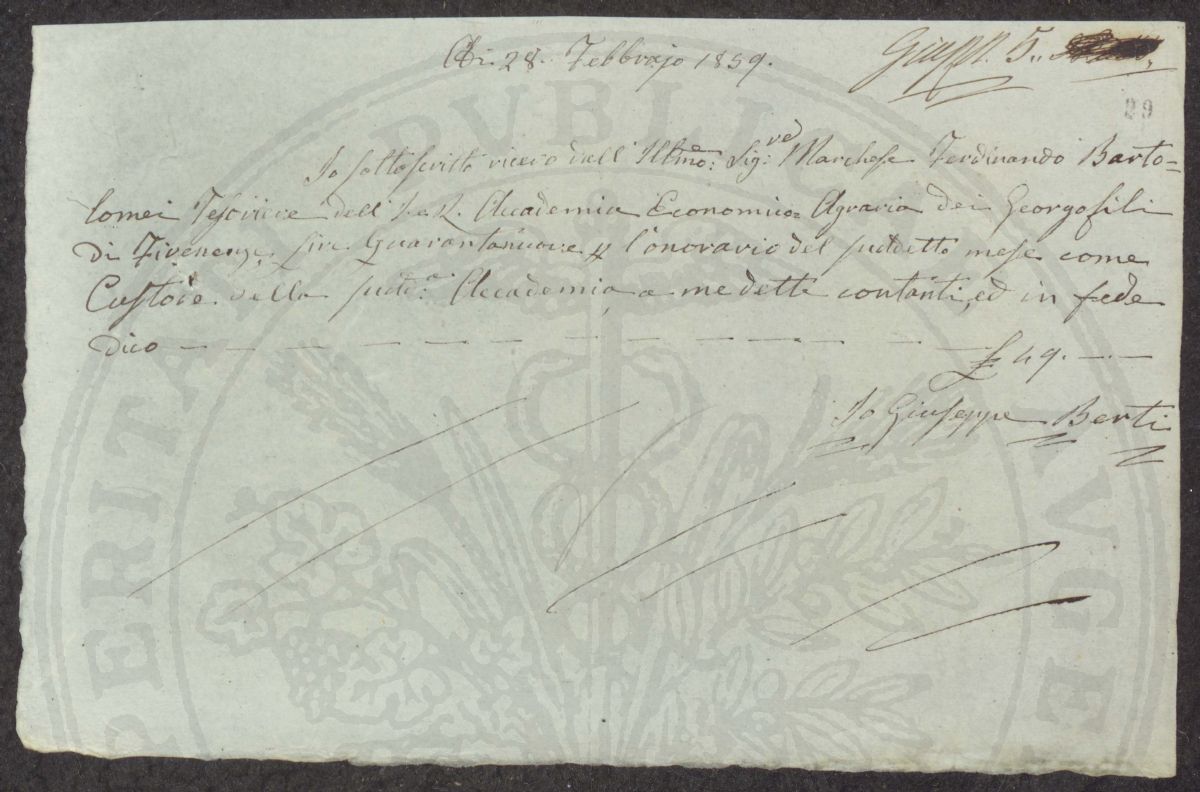 Adi 28. Febbrajo 1859.
Giusp. 5.,
29
Io sottoscritto ricevo dall' Illmo: Sigre Marchese Ferdinando Barto-
lomei Tesoriere dell' I. e R. Accademia Economico=Agraria dei Georgofili
di Firenenze, Lire Quarantanuove p l'onorario del suddetto mese come
Custode della sudta Accademia, a me detti contanti, ed in fede
dico — — — — — — — — — —
£ 49. — —
Io Giuseppe Berti
PUBLICAE
PERITATI
AUGE